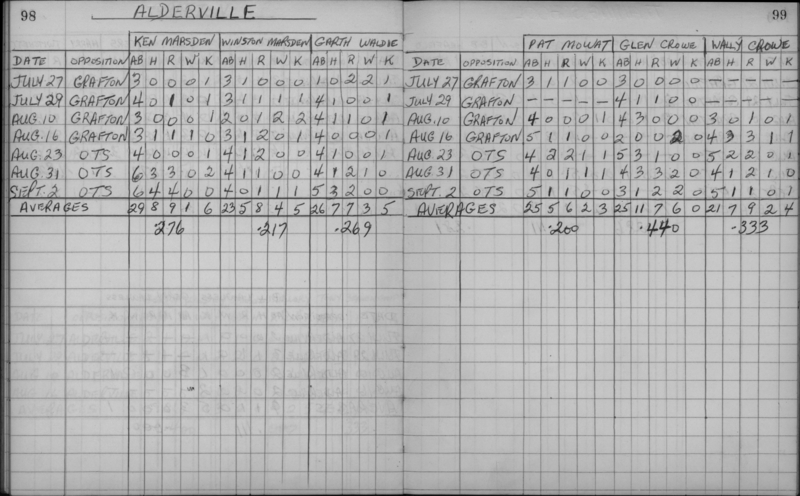 98
ALDERVILLE
KEN MARSDEN WINSTON MARSDEN GARTH WALDIE
DATE OPPOSITION AB H R W K AB H R W K AB H R W K
JULY 27 GRAFTON 3 0 0 0 1 3 1 0 0 0 1 0 2 2 1
JULY 29 GRAFTON 4 0 1 0 1 3 1 1 1 1 4 1 0 0 1
AUG 10 GRAFTON 3 0 0 0 1 2 0 1 2 2 4 1 1 0 1
AUG. 16 GRAFTON 3 1 1 1 0 3 1 2 0 1 4 0 0 0 1
AUG. 23 OTS 4 0 0 0 1 4 1 2 0 0 4 1 0 0 1
AUG. 31 OTS 6 3 3 0 2 4 1 1 0 0 4 1 2 1 0
SEPT. 2 OTS 6 4 4 0 0 4 0 1 1 1 5 3 2 0 0
AVERAGES 29 8 9 1 6 23 5 8 4 5 26 7 7 3 5
.276 .217 .269
99
PAT MOWAT GLEN CROWE WALLY CROWE
DATE OPPOSITION AB H R W K AB H R W K AB H R W K
JULY 27 GRAFTON 3 1 1 0 0 3 0 0 0 0 - - - - -
JULY 29 GRAFTON - - - - - 4 1 1 0 0 - - - - -
AUG. 10 GRAFTON 4 0 0 0 1 4 3 0 0 0 3 0 1 0 1
AUG 16 GRAFTON 5 1 1 0 0 2 0 0 2 0 4 3 3 1 1
AUG 23 OTS 4 2 2 1 1 5 3 1 0 0 5 2 2 0 1
AUG. 31 OTS 4 0 1 1 1 4 3 3 2 0 4 1 2 1 0
SEPT. 2 OTS 5 1 1 0 0 3 1 2 2 0 5 1 1 0 1
AVERAGES 25 5 6 2 3 25 11 7 6 0 21 7 9 2 4
.200 .440 .333